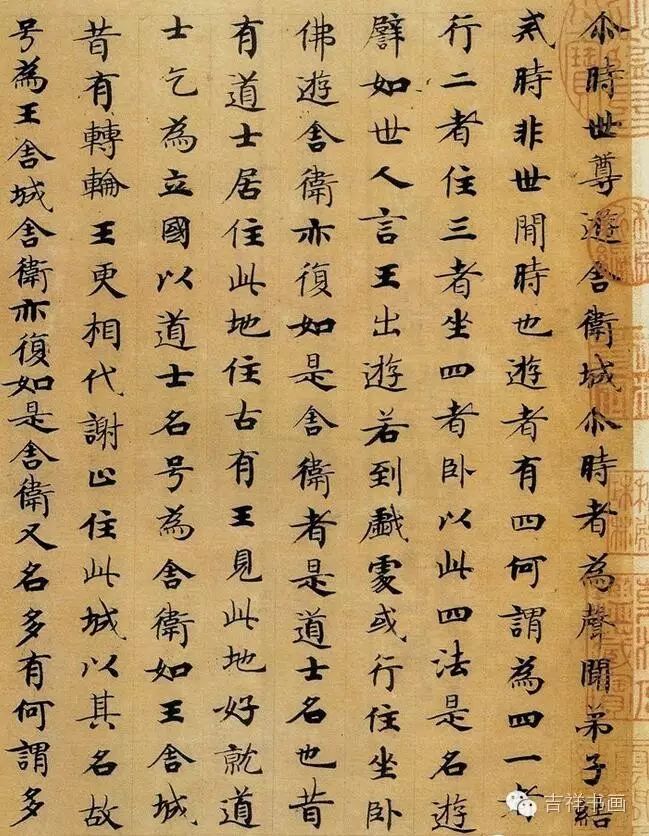 尒時世尊遊舍衛城尒時者為聲聞弟子結
戒時非世間時也遊者有四何謂為四一者
行二者住三者坐四者卧以此四法是名遊
譬如世人言王出遊若到戲處或行住坐卧
佛遊舍衛亦復如是舍衛者是道士名也昔
有道士居住此地住古有王見此地好就道
士乞為立國以道士名号為舍衛如王舍城
昔有轉輪王更相代謝止住此城以其名故
号為王舍城舍衛亦復如是舍衛又名多有何謂多
吉祥书画